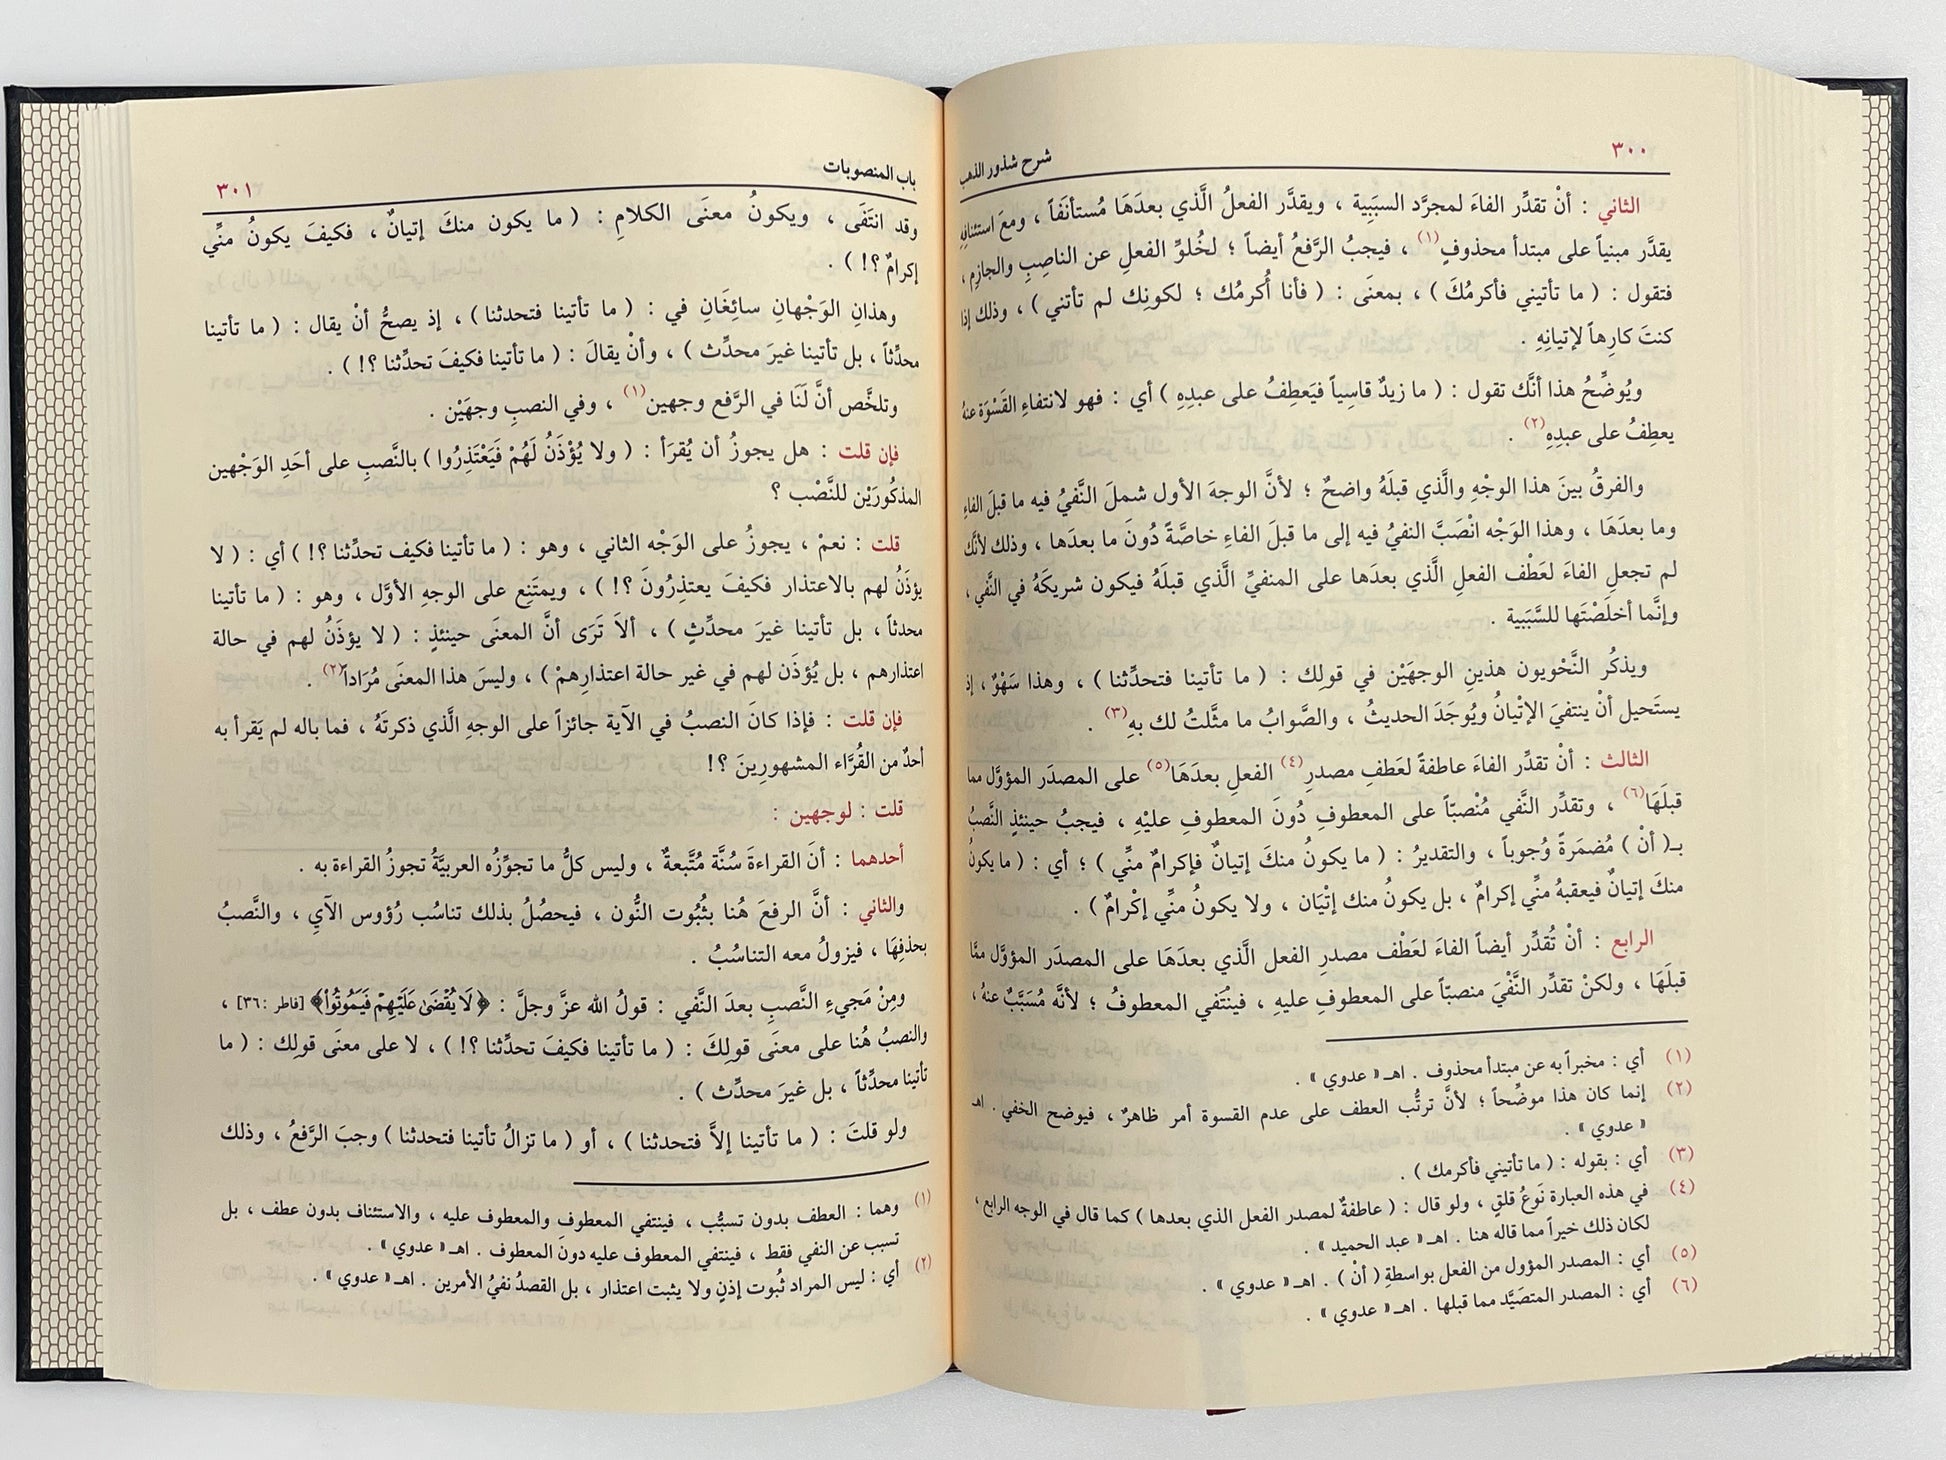 ٣٠٠
شرح شذور الذهب
الثاني : أنْ تقدِّر الفاءَ لمجرَّد السببِيةِ ، ويقدَّر الفعلُ الَّذي بعدَهَا مُستأنَفاً ، ومعَ استئنافِهِ
يقدَّر مبنياً على مبتدأ محذوفٍ(١) ، فيجبُ الرَّفعُ أيضاً ؛ لخُلوِّ الفعلِ عن الناصِبِ والجازِمِ ،
فتقول : ( ما تأتيني فأكرمُكَ ) ، بمعنَى : ( فأنا أُكرمُك ؛ لكونِك لم تأتني ) ، وذلك إذا
كنتَ كارِهاً لإتيانِهِ .
ويُوضِّحُ هذا أنَّك تقول : ( ما زيدٌ قاسِياً فيَعطِفُ على عبدِهِ ) أي : فهو لانتفاءِ القَسْوَة عنهُ
يعطِفُ على عبدِهِ(٢) .
والفرقُ بينَ هذا الوجْهِ والَّذي قبلَهُ واضحٌ ؛ لأنَّ الوجهَ الأول شملَ النَّفيُ فيه ما قبلَ الفاءِ
وما بعدَهَا ، وهذا الوَجْه انْصَبَّ النفيُ فيه إلى ما قبلَ الفاءِ خاصَّةً دُونَ ما بعدَها ، وذلك لأنَّك
لم تجعلِ الفاءَ لعَطْف الفعلِ الَّذي بعدَها على المنفيِّ الَّذي قبلَهُ فيكون شريكَهُ في النَّفي ،
وإنَّما أخلَصْتَها للسَّبَبية .
ويذكُر النَّحْويون هذينِ الوجهَيْن في قولِك : ( ما تأتينا فتحدِّثنا ) ، وهذا سَهْوٌ ، إذ
يستَحيل أنْ ينتفيَ الإتْيانُ ويُوجَدَ الحديثُ ، والصَّوابُ ما مثَّلتُ لك بهِ(٣) .
الثالث : أنْ تقدِّر الفاءَ عاطفةً لعَطفِ مصدرِ(٤) الفعلِ بعدَهَا(٥) على المصدَر المؤوَّل مما
قبلَهَا(٦) ، وتقدِّر النَّفي مُنْصبّاً على المعطوفِ دُونَ المعطوفِ عليْهِ ، فيجبُ حينئذٍ النَّصبُ
بـ( أنْ ) مُضمَرةً وُجوباً ، والتقديرُ : ( ما يكونُ منكَ إتيانٌ فإكرامٌ منِّي ) ؛ أي : ( ما يكونُ
منكَ إتيانٌ فيعقبهُ منِّي إكرامٌ ، بل يكونُ منك إتْيَان ، ولا يكونُ منِّي إكْرامٌ ) .
الرابع : أنْ تُقدِّر أيضاً الفاءَ لعَطْف مصدرِ الفعل الَّذي بعدَهَا على المصدَر المؤوَّل ممَّا
قبلَهَا ، ولكنْ تقدِّر النَّفْيَ منصبّاً على المعطوفِ عليهِ ، فينْتَفي المعطوفُ ؛ لأنَّه مُسَبَّبٌ عنهُ ،
(١) أي : مخبراً به عن مبتدأ محذوف . اهـ « عدوي » .
(٢) إنما كان هذا موضِّحاً ؛ لأنَّ ترتُّب العطف على عدم القسوة أمر ظاهرٌ ، فيوضح الخفي . اهـ
« عدوي » .
(٣) أي : بقوله : ( ما تأتيني فأكرمك ) .
(٤) في هذه العبارة نَوعُ قلقٍ ، ولو قال : ( عاطفةٌ لمصدر الفعل الذي بعدها ) كما قال في الوجه الرابع ،
لكان ذلك خيراً مما قاله هنا . اهـ « عبد الحميد » .
(٥) أي : المصدر المؤول من الفعل بواسطةِ ( أنْ ) . اهـ « عدوي » .
(٦) أي : المصدر المتصَيَّد مما قبلها . اهـ « عدوي » .
باب المنصوبات
٣٠١
وقد انتَفَى ، ويكونُ معنَى الكلامِ : ( ما يكون منكَ إتيانٌ ، فكيفَ يكونُ منِّي
إكرامٌ ؟! ) .
وهذانِ الوَجْهانِ سائِغَانِ في : ( ما تأتينا فتحدثنا ) ، إذ يصحُّ أنْ يقال : ( ما تأتينا
محدِّثاً ، بل تأتينا غيرَ محدِّث ) ، وأنْ يقالَ : ( ما تأتينا فكيفَ تحدِّثنا ؟! ) .
وتلخَّص أنَّ لَنَا في الرَّفع وجهين(١) ، وفي النصبِ وجهَيْن .
فإن قلت : هل يجوزُ أن يُقرَأ : ( ولا يُؤْذَنُ لَهُمْ فَيَعْتَذِرُوا ) بالنَّصبِ على أحَدِ الوَجْهين
المذكُورَيْن للنَّصْب ؟
قلت : نعمْ ، يجوزُ على الوَجْه الثاني ، وهو : ( ما تأتينا فكيف تحدِّثنا ؟! ) أي : ( لا
يؤذَنُ لهم بالاعتذار فكيفَ يعتذِرُونَ ؟! ) ، ويمتَنِع على الوجهِ الأوَّل ، وهو : ( ما تأتينا
محدثاً ، بل تأتينا غيرَ محدِّثٍ ) ، ألاَ تَرَى أنَّ المعنَى حينئذٍ : ( لا يؤذَنُ لهم في حالة
اعتذارهم ، بل يُؤذَن لهم في غير حالة اعتذارِهمْ ) ، وليسَ هذا المعنَى مُرَاداً(٢) .
فإن قلت : فإذا كانَ النصبُ في الآية جائزاً على الوجهِ الَّذي ذكرتَهُ ، فما باله لم يَقرأ به
أحدٌ من القُرَّاء المشهورِينَ ؟!
قلت : لوجهين :
أحدهما : أنَ القراءةَ سُنَّة مُتَّبعةٌ ، وليس كلُّ ما تجوِّزُه العربيَّةُ تجوزُ القراءة به .
والثاني : أنَّ الرفعَ هُنا بثُبُوت النُّون ، فيحصُلُ بذلك تناسُب رُؤوس الآيِ ، والنَّصبُ
بحذفِهَا ، فيزولُ معه التناسُبُ .
ومِنْ مَجيءِ النَّصبِ بعدَ النَّفي : قولُ الله عزَّ وجلَّ : ﴿ لَا يُقْضَىٰ عَلَيْهِمْ فَيَمُوتُوا۟﴾ [فاطر : ٣٦] ،
والنصبُ هُنا على معنَى قولِكَ : ( ما تأتينا فكيفَ تحدِّثنا ؟! ) ، لا على معنَى قولِك : ( ما
تأتينا محدِّثاً ، بل غيرَ محدِّث ) .
ولو قلتَ : ( ما تأتينا إلاَّ فتحدثنا ) ، أو ( ما تزالُ تأتينا فتحدثنا ) وجبَ الرَّفعُ ، وذلك
(١) وهما : العطف بدون تسبُّب ، فينتفي المعطوفِ والمعطوف عليه ، والاستئناف بدون عطف ، بل
تسبب عن النفي فقط ، فينتفي المعطوف عليه دونَ المعطوف . اهـ « عدوي » .
(٢) أي : ليس المراد ثُبوت إذنٍ ولا يثبت اعتذار ، بل القصدُ نفيُ الأمرين . اهـ « عدوي » .